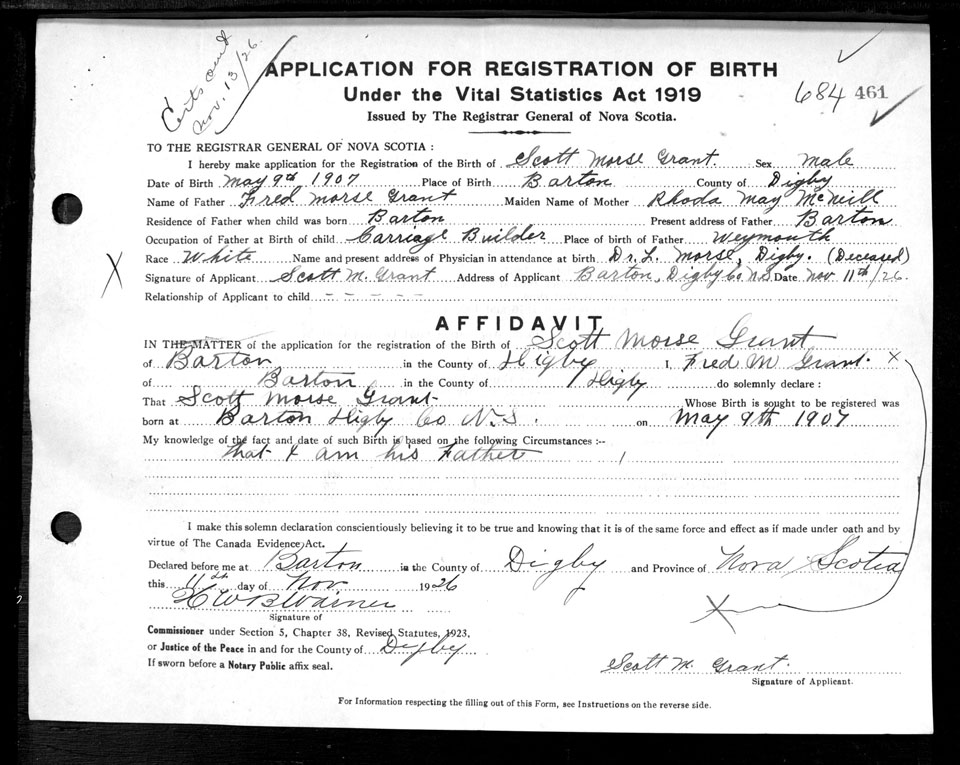 Certs and
Nov. 13/26.
APPLICATION FOR REGISTRATION OF BIRTH
Under the Vital Statistics Act 1919
684 461
Issued by The Registrar General of Nova Scotia.
TO THE REGISTRAR GENERAL OF NOVA SCOTIA :
I hereby make application for the Registration of the Birth of Scott Morse Grant. Sex Male
Date of Birth May 9th 1907 Place of Birth Barton County of Digby
Name of Father Fred Morse Grant Maiden Name of Mother Rhoda May McNeill
Residence of Father when child was born Barton Present address of Father Barton
Occupation of Father at Birth of child Carriage Builder Place of birth of Father Weymouth
Race White Name and present address of Physician in attendance at birth Dr. L. Morse, Digby. (Deceased)
X Signature of Applicant Scott M. Grant Address of Applicant Barton, Digby Co N.S Date Nov 11th/26.
Relationship of Applicant to child - - - - -
AFFIDAVIT
IN THE MATTER of the application for the registration of the Birth of Scott Morse Grant
of Barton in the County of Digby I, Fred M Grant. X
of Barton in the County of Digby do solemnly declare :
That Scott Morse Grant Whose Birth is sought to be registered was
born at Barton Digby Co N.S. on May 9th 1907
My knowledge of the fact and date of such Birth is based on the following Circumstances :--
that I am his Father
I make this solemn declaration conscientiously believing it to be true and knowing that it is of the same force and effect as if made under oath and by
virtue of The Canada Evidence Act.
Declared before me at Barton in the County of Digby and Province of Nova Scotia
this 11th day of Nov 1926
W B Warner
X
Signature of
Commissioner under Section 5, Chapter 38, Revised Statutes, 1923,
or Justice of the Peace in and for the County of Digby
If sworn before a Notary Public affix seal.
Scott M. Grant.
Signature of Applicant.
For Information respecting the filling out of this Form, see Instructions on the reverse side.